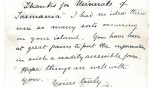 Thanks for Minerals of
Tasmania. I had no idea there
are so many sorts occuring
in your island. You have been
at great pains to put the information
in such a readily accessible form
Hope things are well with
you.
Yours truly